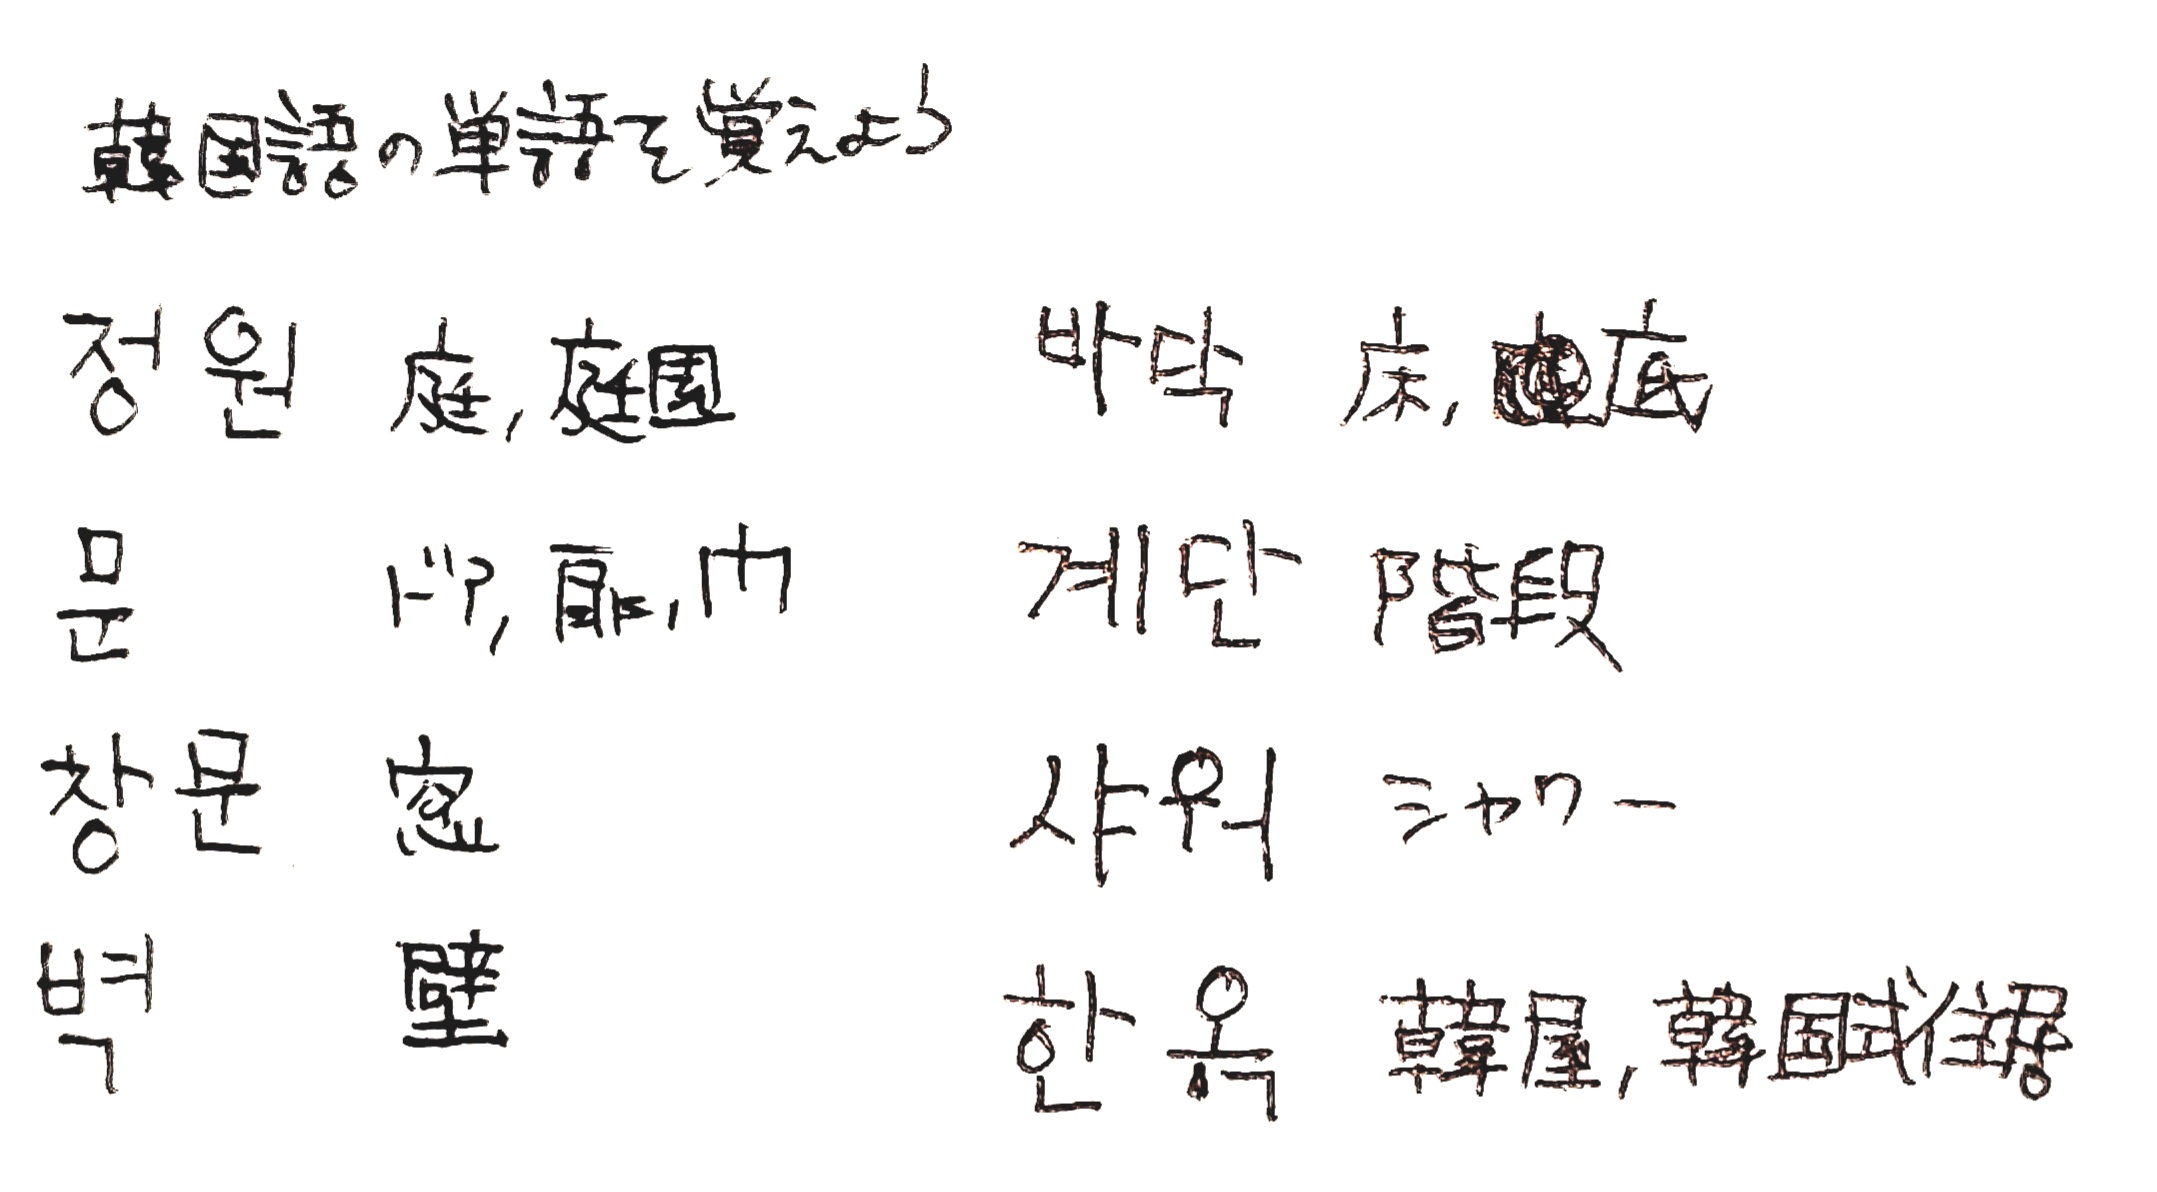 韓国語の単語を覚えよう
정원 庭, 庭園
문 ドア, 扉, 门
창문 窓
벽 壁
바닥 床, 底
계단 階段
샤워 シャワー
한옥 韓屋, 韓国式住居